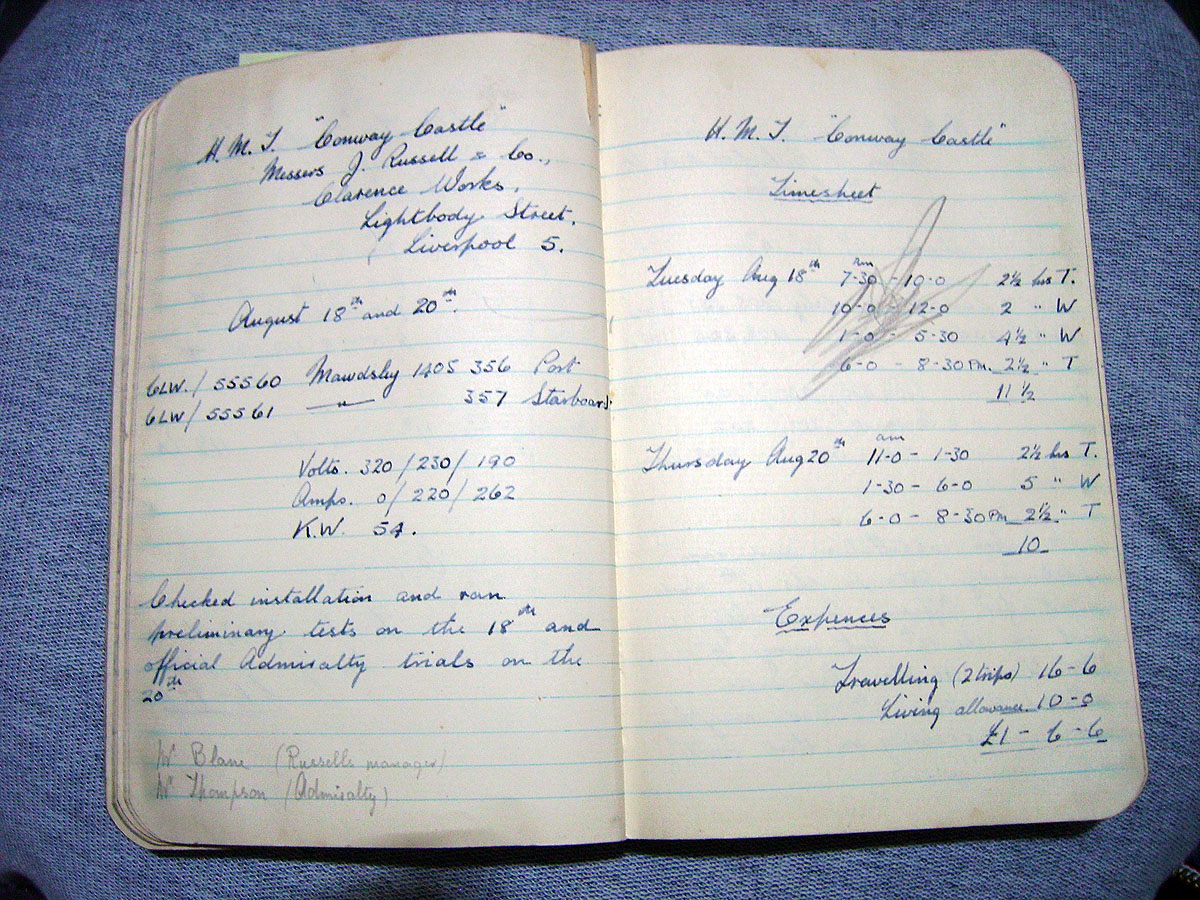 H. M. T. "Conway Castle"
Messers J. Russell & Co.,
Clarence Works,
Lightbody Street,
Liverpool 5.
August 18th and 20th.
6LW. / 55560 Mawdsley 1405 356 Port
6LW / 55561 — " — 357 Starboard.
Volts. 320 / 230 / 190
Amps. 0 / 220 / 262
K.W. 54.
Checked installation and ran
preliminary tests on the 18th and
official Admiralty trials on the
20th
Mr Blane (Russells manager)
Mr Thompson (Admiralty)
H. M. T. "Conway Castle"
Timesheet
Tuesday Aug 18th 7-30 am - 10-0 2½ hrs T.
10-0 - 12-0 2 " W
1-0 - 5-30 4½ " W
6-0 - 8-30 PM. 2½ " T
11½
Thursday Aug 20th 11-0 am - 1-30 2½ hrs T.
1-30 - 6-0 5 " W
6-0 - 8-30 PM 2½ " T
10
Expences
Travelling (2 trips) 16-6
Living allowance. 10-0
£1 - 6 - 6